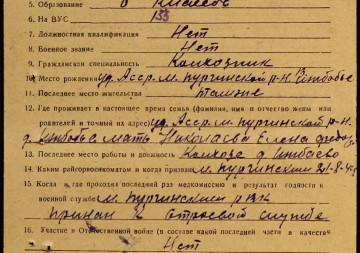 5. Образование 6 классов
6. На ВУС 133
7. Должностная квалификация Нет
8. Военное звание Нет
9. Гражданская специальность Колхозник
10. Место рождения уд. Асср. М. Пургинской р-н
11. Последнее место жительства Тамже
12. Где проживает в настоящее время семья (фамилия, имя и отчество жены или
родителей и точный их адрес) уд. Асср. М. Пургинской р-н.
мать Николаева Елена
13. Последнее место работы и должность Колхоз д.
14. Каким райгорвоенкоматом и когда призван М. Пургинским
15. Когда где проходил последний раз медкомиссию и результат годности к
военной службе М. Пургинским РВК
признан к строевой службе
16. Участие в Отечественной войне (в составе какой последней части в качестве
Нет